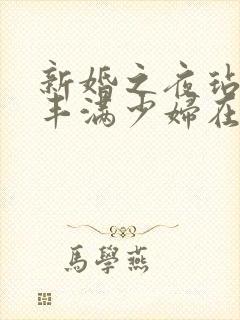 新婚之夜玷
丰满少婦在
馬學燕